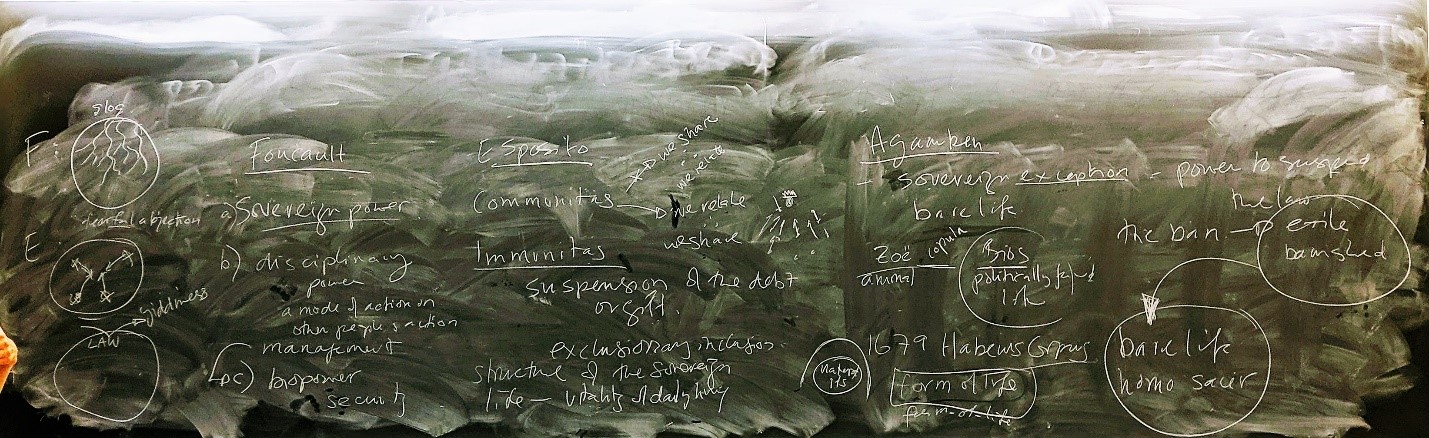 F:
E
LAW
giddiness
Foucault
a) Sovereign power
b) disciplinary
power
a mode of action on
other people's action
management
c) biopower
security
Esposito
Communitas
we share
we relate
we relate
we share
Immunitas
suspension of the debt
or gift.
exclusionary inclusion
structure of the sovereign
life – vitality of daily
Agamben
- sovereign exception - power to suspend
the law
bare life
the ban → exile
banished
Zoë copula Bios
animal politically
life
1679 Habeus Corpus
form of life
form-of-life
bare life
homo sacer